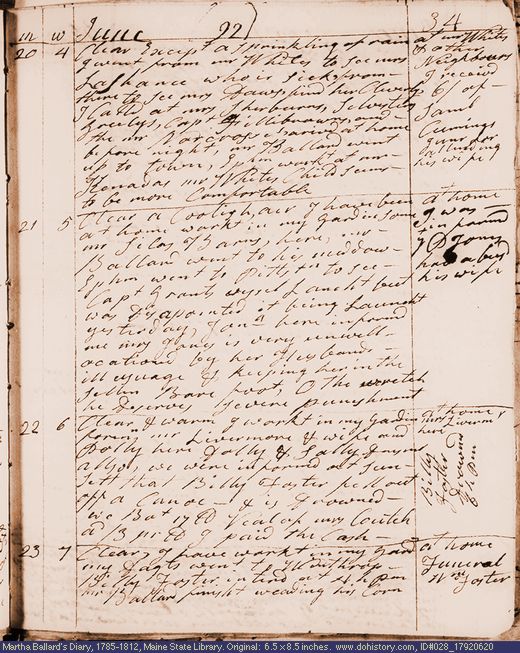 m w June 92 34
20 4 Clear Except a sprinkling of rain
I went from mr Whites to see mrs
Lashance who is sick from
there to see mrs Daws find her Cleverly
I Calld at mrs Sherburns, Selvesters
Greelys, Capt Fillibrowns, and
the mr
before night, mr Ballard went
up to town, Ephm workt at mr
Kenadas mr Whites Child seems
to be more Comfortable
at mr Whites
& other
Neighbours
I receivd
6/ of
Saml
Cumings
for
his wife
21 5 Clear a Coolish air, I have been
at home workt in my gardin some
mr Silas Barns, here, mr
Ballard went to his meddow
Ephm went to Pittstn to see
Capt Grants vessel Lancht but
was disapointed it being Launcht
yesterday, Jona here informd
me mrs Jones is very unwell
ocationd by her Husbands
ill usuage of keeping her in the
Sellar Bare foot, O the wretch
he deserves severe punishment
at home
I was
informd
had
his wife
22 6 Clear & warm I workt in my gardin
foren mr Livermore & wife and
Dolly here Dolly & Sally
allso, we were informd at sun
sett that Billy Foster fell out
off a Canoe & is Drowned
we Bot 17 lb Veal of mrs Coutch
at 3 pr lb I paid the Cash
at home
here
Billy
Foster
Drownd
23 7 Clear, I have workt in my gard
my Dagts went to Winthrop
Billy Foster interd at 4 h Pm
mr Ballard finisht weading his Corn
at home
Funeral
Wm Foster
Martha Ballard's Diary, 1785-1812, Maine State Library. Original: 6.5 x 8.5 inches. www.dohistory.com, ID#028_17920620